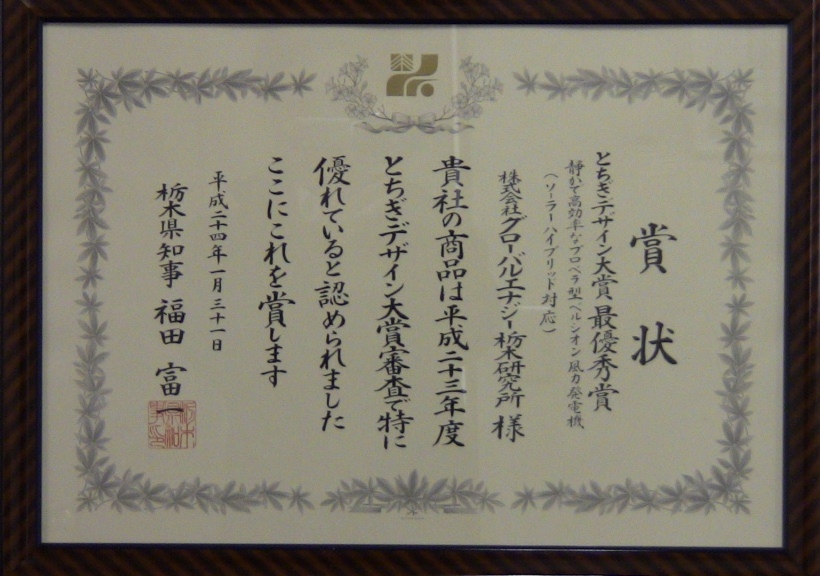 賞状
とちぎデザイン大賞 最優秀賞
静かで高効率なプロペラ型ベルシオン風力発電機
（ソーラーハイブリッド対応）
株式会社グローバルエナジー栃木研究所 様
貴社の商品は平成二十三年度
とちぎデザイン大賞審査で特に
優れていると認められました
ここにこれを賞します
平成二十四年一月三十一日
栃木県知事 福田 富一